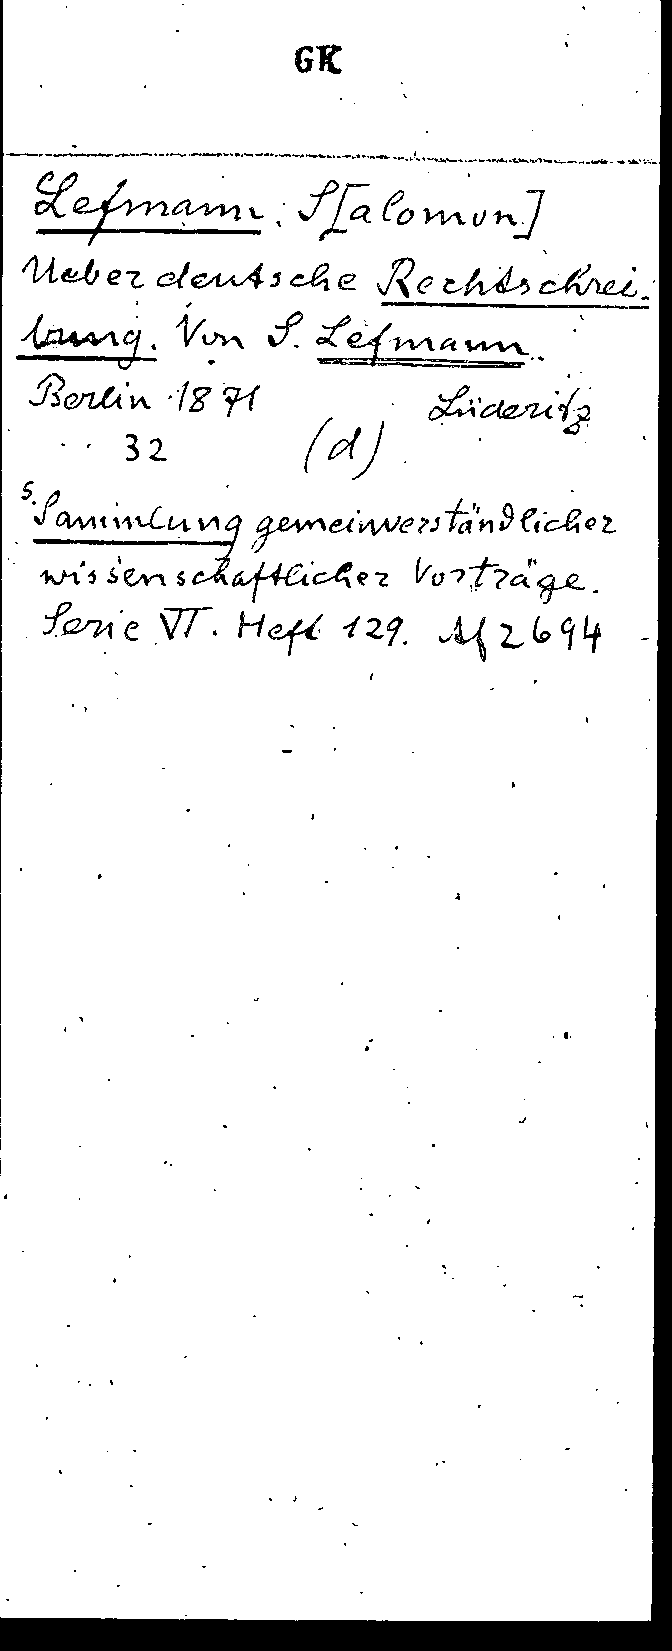 GK
Lefmann, S[alomon]
Ueber deutsche Rechtschrei-
bung. Von S. Lefmann.
Berlin 1871 Lüderitz
32 (d)
s. Sammlung gemeinverständlicher
wissenschaftlicher Vorträge.
Serie VI. Heft 129. Af 2694